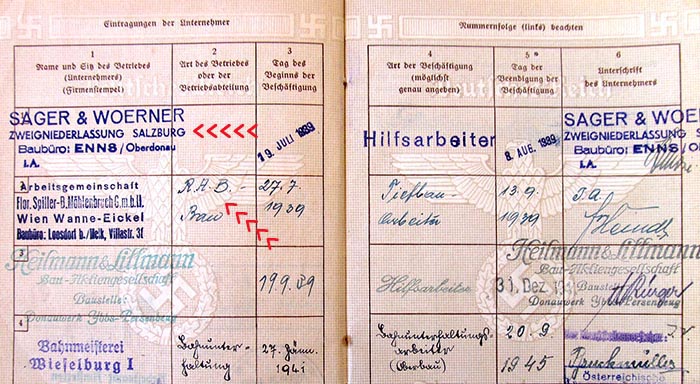 Eintragungen der Unternehmer
1
Name und Sitz des Betriebes
(Unternehmers)
(Firmenstempel)
2
Art des Betriebes
oder der
Betriebsabteilung
3
Tag des
Beginns der
Beschäftigung
SAGER & WOERNER
ZWEIGNIEDERLASSUNG SALZBURG
Baubüro: ENNS/Oberdonau
I.A.
<<<<<
19. JULI 1939
2
Arbeitsgemeinschaft
Flor. Spiller-B. Mühlenbruch G.m.b.H.
Wien Wanne-Eickel
Baubüro: Loosdorf b/Melk, Villastr. 31
R.A.B.-
Bau
<<<<<
27.7.
1939
3
Heilmann & Littmann
Bau-Aktiengesellschaft
Baustelle:
Donauwerk Ybbs-Persenbeug
19.9.39
4
Bahnmeisterei
Wieselburg I
Bahnunter-
haltung
27. Jänn.
1941
Nummernfolge (links) beachten
4
Art der Beschäftigung
(möglichst
genau angeben)
5*
Tag der
Beendigung der
Beschäftigung
6
Unterschrift
des Unternehmers
Hilfsarbeiter
8. AUG. 1939
SAGER & WOERNER
ZWEIGNIEDERLASSUNG SALZBURG
Baubüro: ENNS/Oberdonau
I.A.
Tiefbau-
arbeiter
13.9.
1939
I.A.
Heilmann & Littmann
Bau-Aktiengesellschaft
Baustelle:
Donauwerk Ybbs-Persenbeug
Hilfsarbeiter
31. Dez.
Bahnunterhaltungs-
arbeiter
(Oberbau)
20.9.
1945
Österreichische